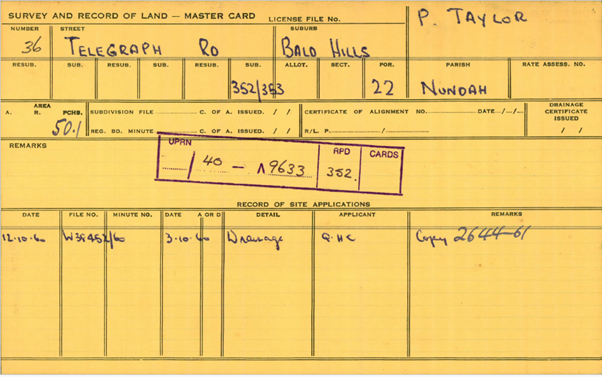 SURVEY AND RECORD OF LAND — MASTER CARD LICENSE FILE No.
P. TAYLOR
NUMBER STREET SUBURB
36 TELEGRAPH RD BALD HILLS
RESUB. SUB. RESUB. SUB. RESUB. SUB. ALLOT. SECT. POR. PARISH RATE ASSES. NO.
352/353 22 NUNDAH
A. AREA R. PCHS. 50.1
SUBDIVISION FILE C. OF A. ISSUED. / /
CERTIFICATE OF ALIGNMENT NO. DATE / /
DRAINAGE CERTIFICATE ISSUED
REG. BD. MINUTE C. OF A. ISSUED. / /
R/L. P. /
/ /
REMARKS
UPRN RPD CARDS
/ 40 — 9633 352
RECORD OF SITE APPLICATIONS
DATE FILE NO. MINUTE NO. DATE A OR D DETAIL APPLICANT REMARKS
12.10.60 /60 3.10.60 Drainage Q.H.C Copy 2644-61